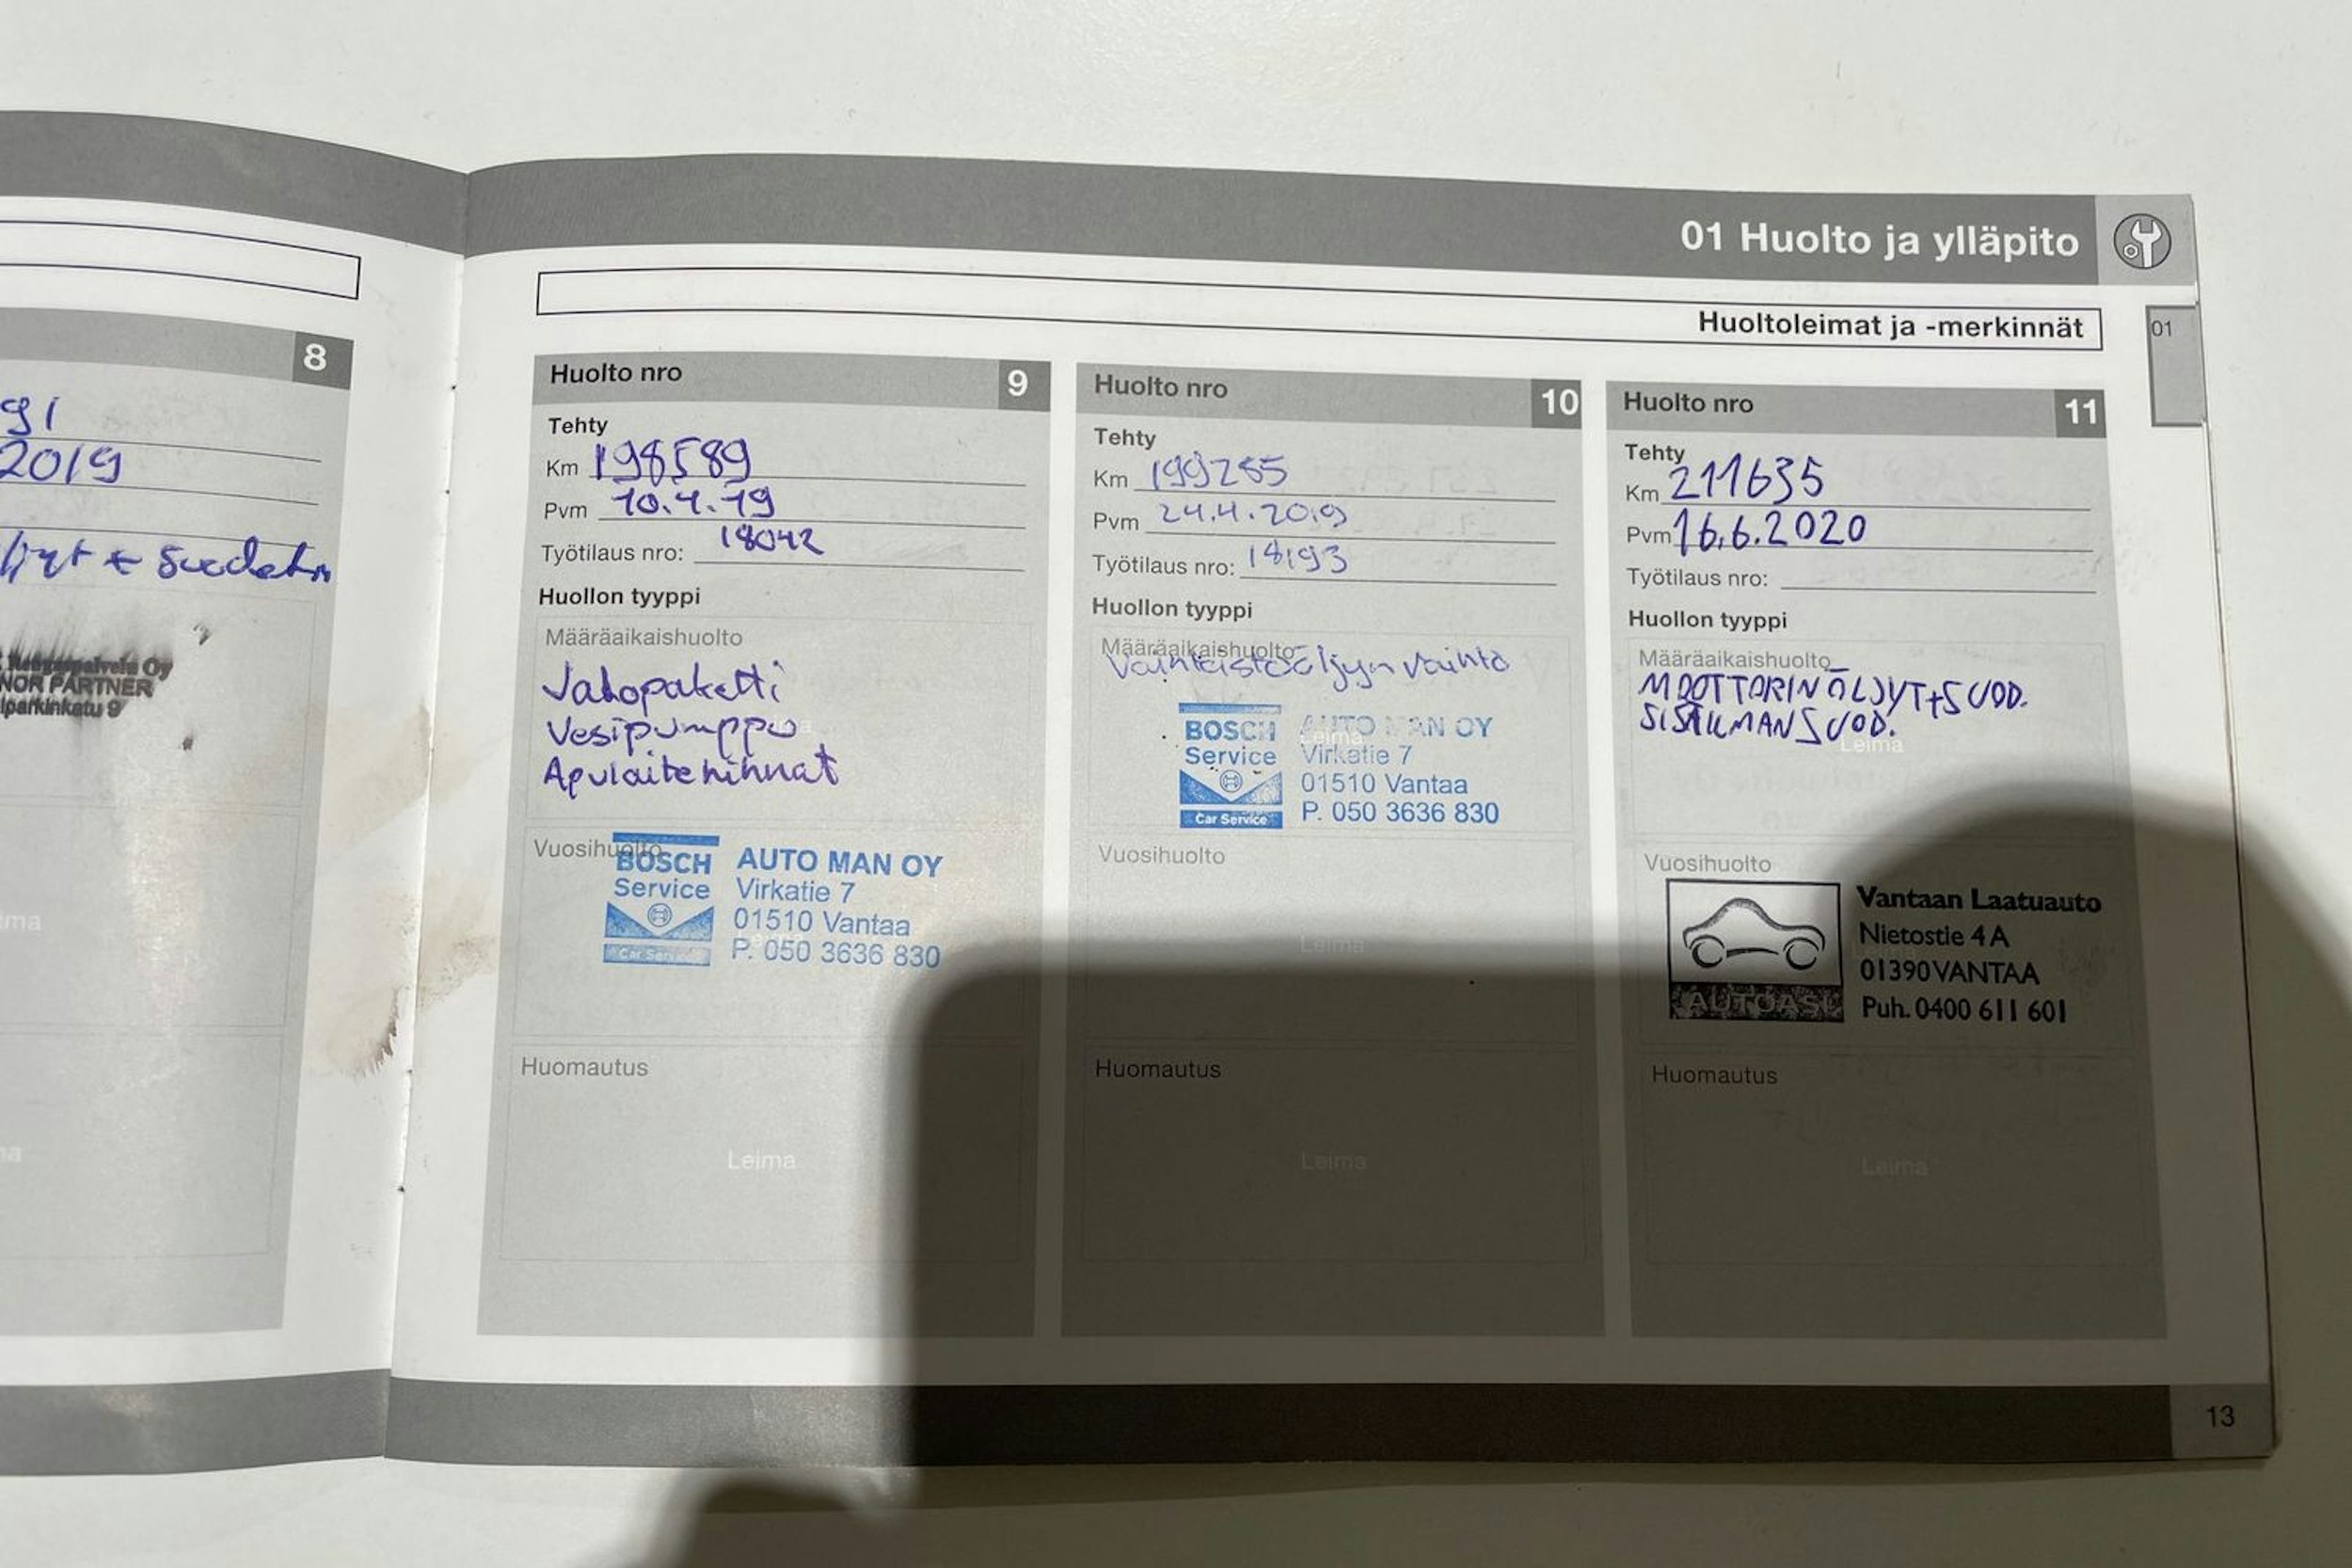 01 Huolto ja ylläpito
Huoltoleimat ja -merkinnät
01
8
91
2019
NOR PARTNER
Huolto nro 9
Tehty
Km 198589
Pvm 10.4.19
Työtilaus nro: 18042
Huollon tyyppi
Määräaikaishuolto
Jakopaketti
Vesipumppu
Apulaitehihnat
Vuosihuolto
BOSCH
Service
Car Service
AUTO MAN OY
Virkatie 7
01510 Vantaa
P. 050 3636 830
Huomautus
Leima
Huolto nro 10
Tehty
Km 199265
Pvm 24.4.2019
Työtilaus nro: 18193
Huollon tyyppi
Määräaikaishuolto
Vaihteistoöljyn vaihto
Leima
BOSCH
Service
Car Service
AUTO MAN OY
Virkatie 7
01510 Vantaa
P. 050 3636 830
Vuosihuolto
Leima
Huomautus
Leima
Huolto nro 11
Tehty
Km 211635
Pvm 16.6.2020
Työtilaus nro:
Huollon tyyppi
Määräaikaishuolto
MOOTTORIN ÖLJYT+SUOD.
SISÄILMAN SUOD.
Leima
Vuosihuolto
Vantaan Laatuauto
Nietostie 4 A
01390 VANTAA
Puh. 0400 611 601
Huomautus
Leima
13